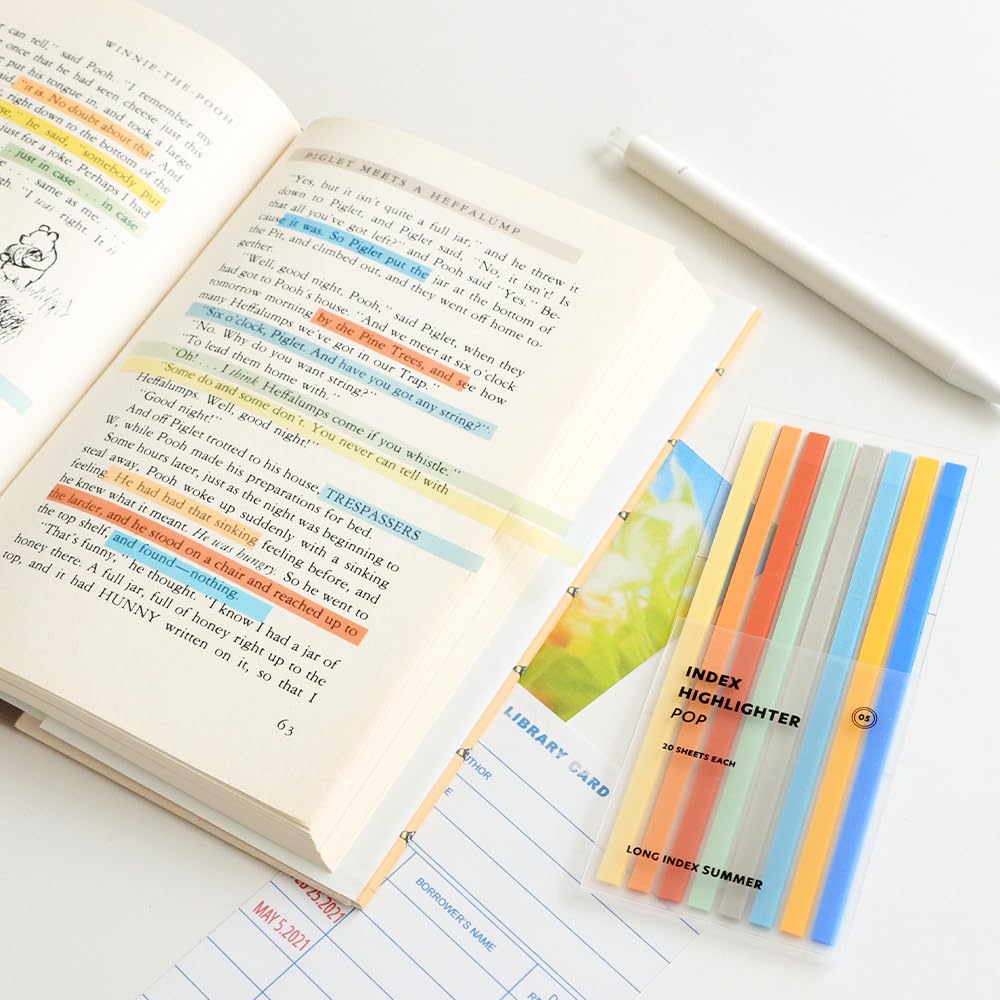 WINNIE-THE-POOH
can tell," said Pooh. "I remember my
once that he had seen cheese just this
put his tongue in, and took a large
"it is. No doubt about that. And
right down to the bottom of the
he said, "somebody put
just for a joke. Perhaps I had
just in case . . . in case
same as me.
"I was right. It is
PIGLET MEETS A HEFFALUMP
"Yes, but it isn't quite a full jar," and he threw it
down to Piglet, and Piglet said, "No, it isn't! Is
that all you've got left?" and Pooh said "Yes." Be-
cause it was. So Piglet put the jar at the bottom of
the Pit, and climbed out, and they went off home to-
gether.
"Well, good night, Pooh," said Piglet, when they
had got to Pooh's house. "And we meet at six o'clock
tomorrow morning by the Pine Trees, and see how
many Heffalumps we've got in our Trap."
"Six o'clock, Piglet. And have you got any string?"
"No. Why do you want string?"
"To lead them home with."
"Oh! . . . I think Heffalumps come if you whistle."
"Some do and some don't. You never can tell with
Heffalumps. Well, good night!"
"Good night!"
And off Piglet trotted to his house, TRESPASSERS
W, while Pooh made his preparations for bed.
Some hours later, just as the night was beginning to
steal away, Pooh woke up suddenly with a sinking
feeling. He had had that sinking feeling before, and
he knew what it meant. He was hungry. So he went to
the larder, and he stood on a chair and reached up to
the top shelf, and found—nothing.
"That's funny," he thought. "I know I had a jar of
honey there. A full jar, full of honey right up to the
top, and it had HUNNY written on it, so that I
63
INDEX
HIGHLIGHTER
POP
05
20 SHEETS EACH
LONG INDEX SUMMER
LIBRARY CARD
BORROWER'S NAME
25,2021
MAY 5,2021